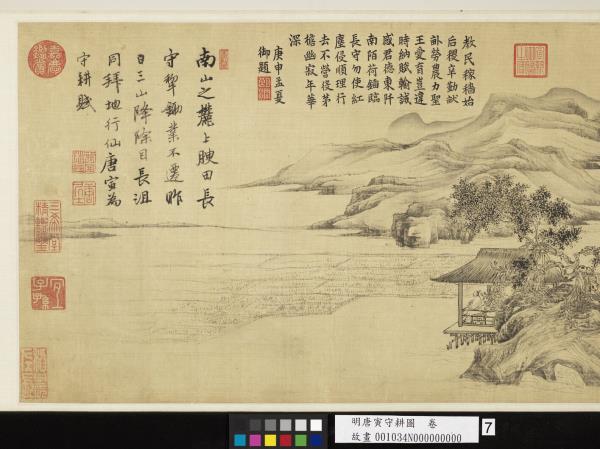 教民稼穡始
后稷辛勤畎
畝勞農力聖
王愛育豈違
時納賦輸誠
感君德東阡
南陌荷鋤臨
長守勿使紅
塵侵順理行
去不營役茅
檐幽寂年華
深
庚申孟夏
御題
南山之麓上腴田長
守犂鋤業不遷昨
日三山降除目長沮
同拜地行仙唐寅為
守耕賦
嘉慶鑑賞
三希堂精鑑璽
宜子孫
明唐寅守耕圖 卷
故畫 001034N000000000
7